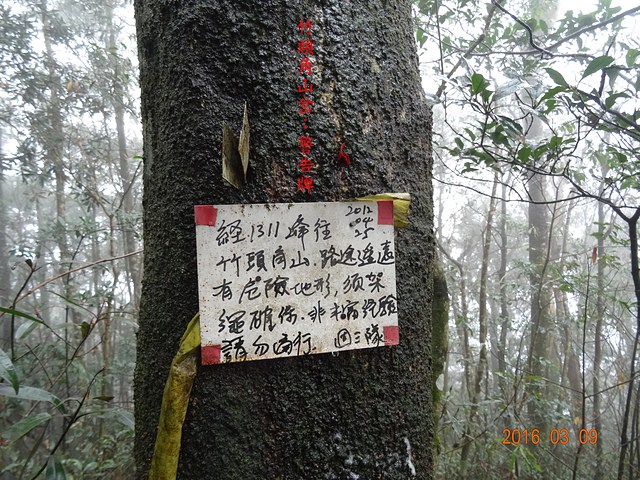 竹頭角山岔；警告牌
2012
04
25
經.1311峰往
竹頭角山.路途遙遠
有危險地形,須架
繩確保.非相當經驗
請勿前行. 四三隊
2016 03 09